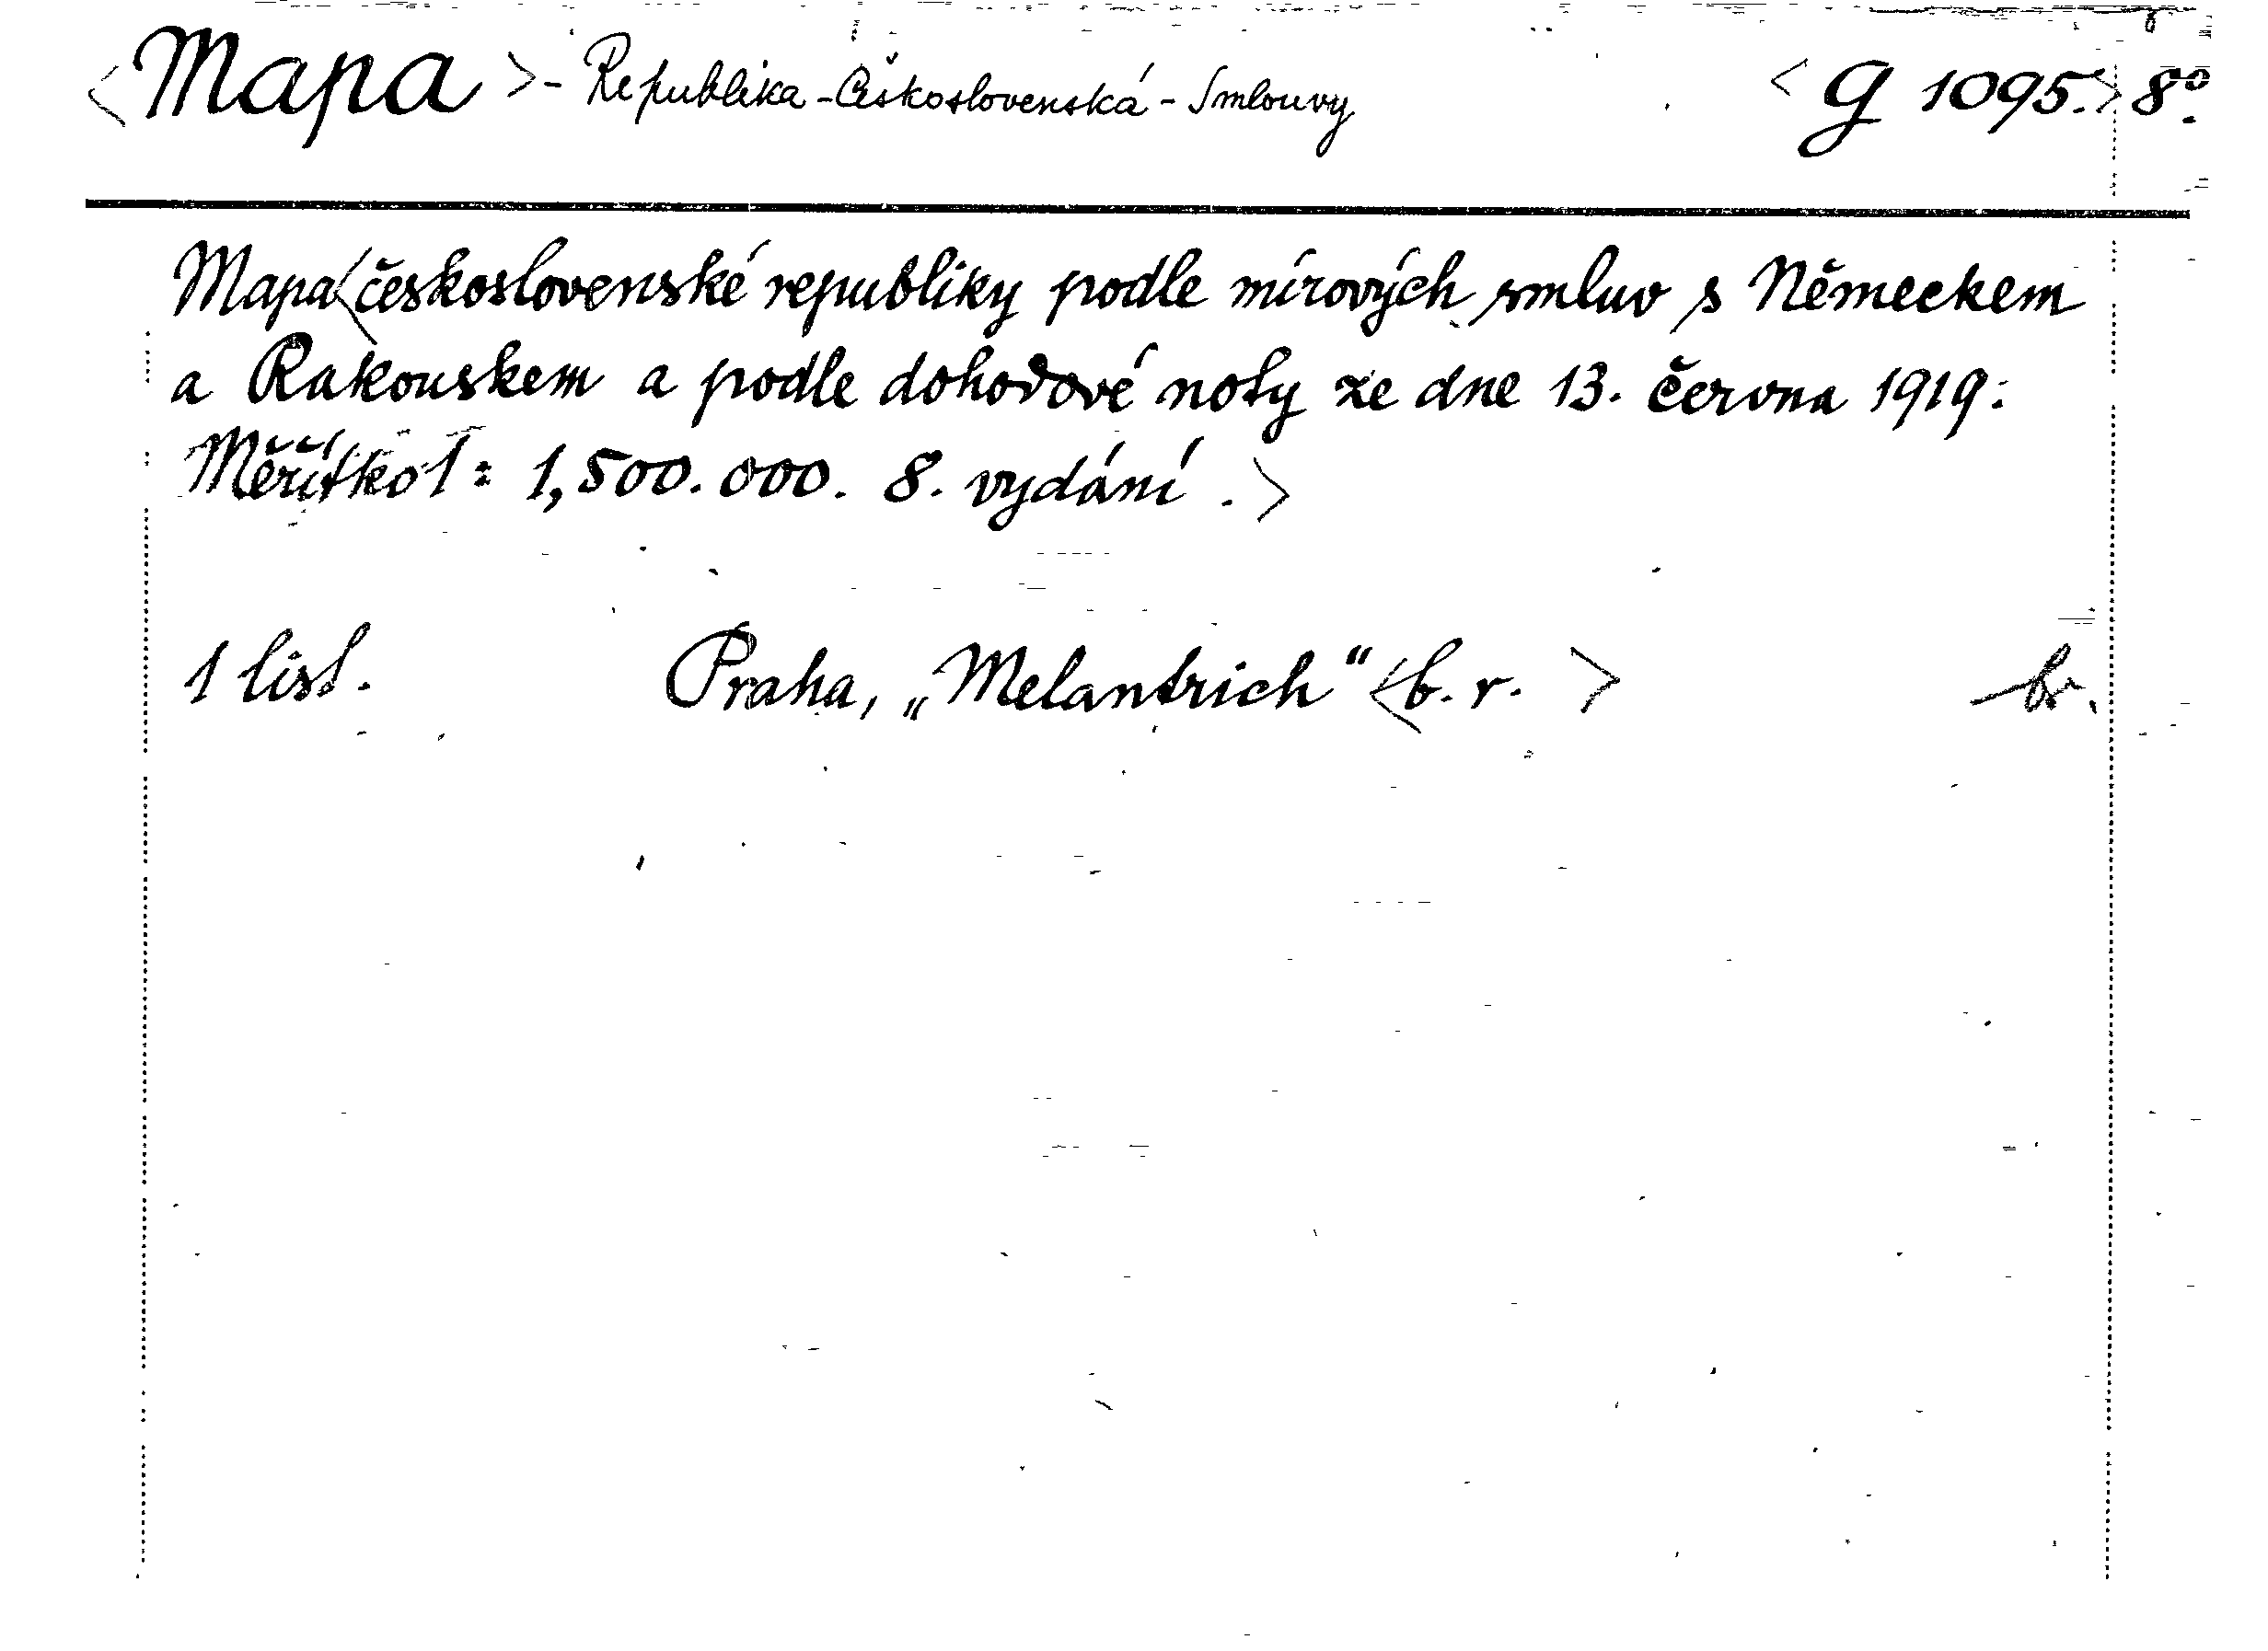 <Mapa>- Republika - Československá - Smlouvy <G 1095.> 8°.
Mapa <československé republiky podle mírových smluv s Německem
a Rakouskem a podle dohodové noty ze dne 13. června 1919.
Měřítko 1 : 1,500.000. 8. vydání.>
1 list. Praha, „Melantrich“ <b. r. >